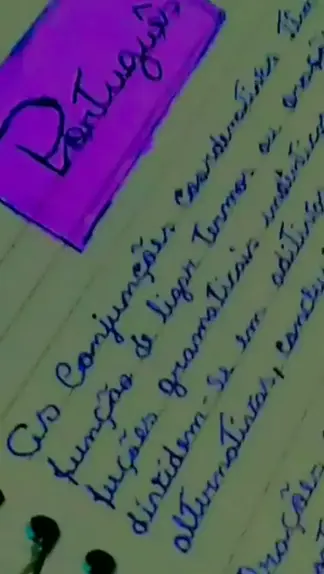 Português
As Conjunções coordenativas têm
função de ligar termos ou
funções gramaticais
dividem-se em
alternativas,
orações